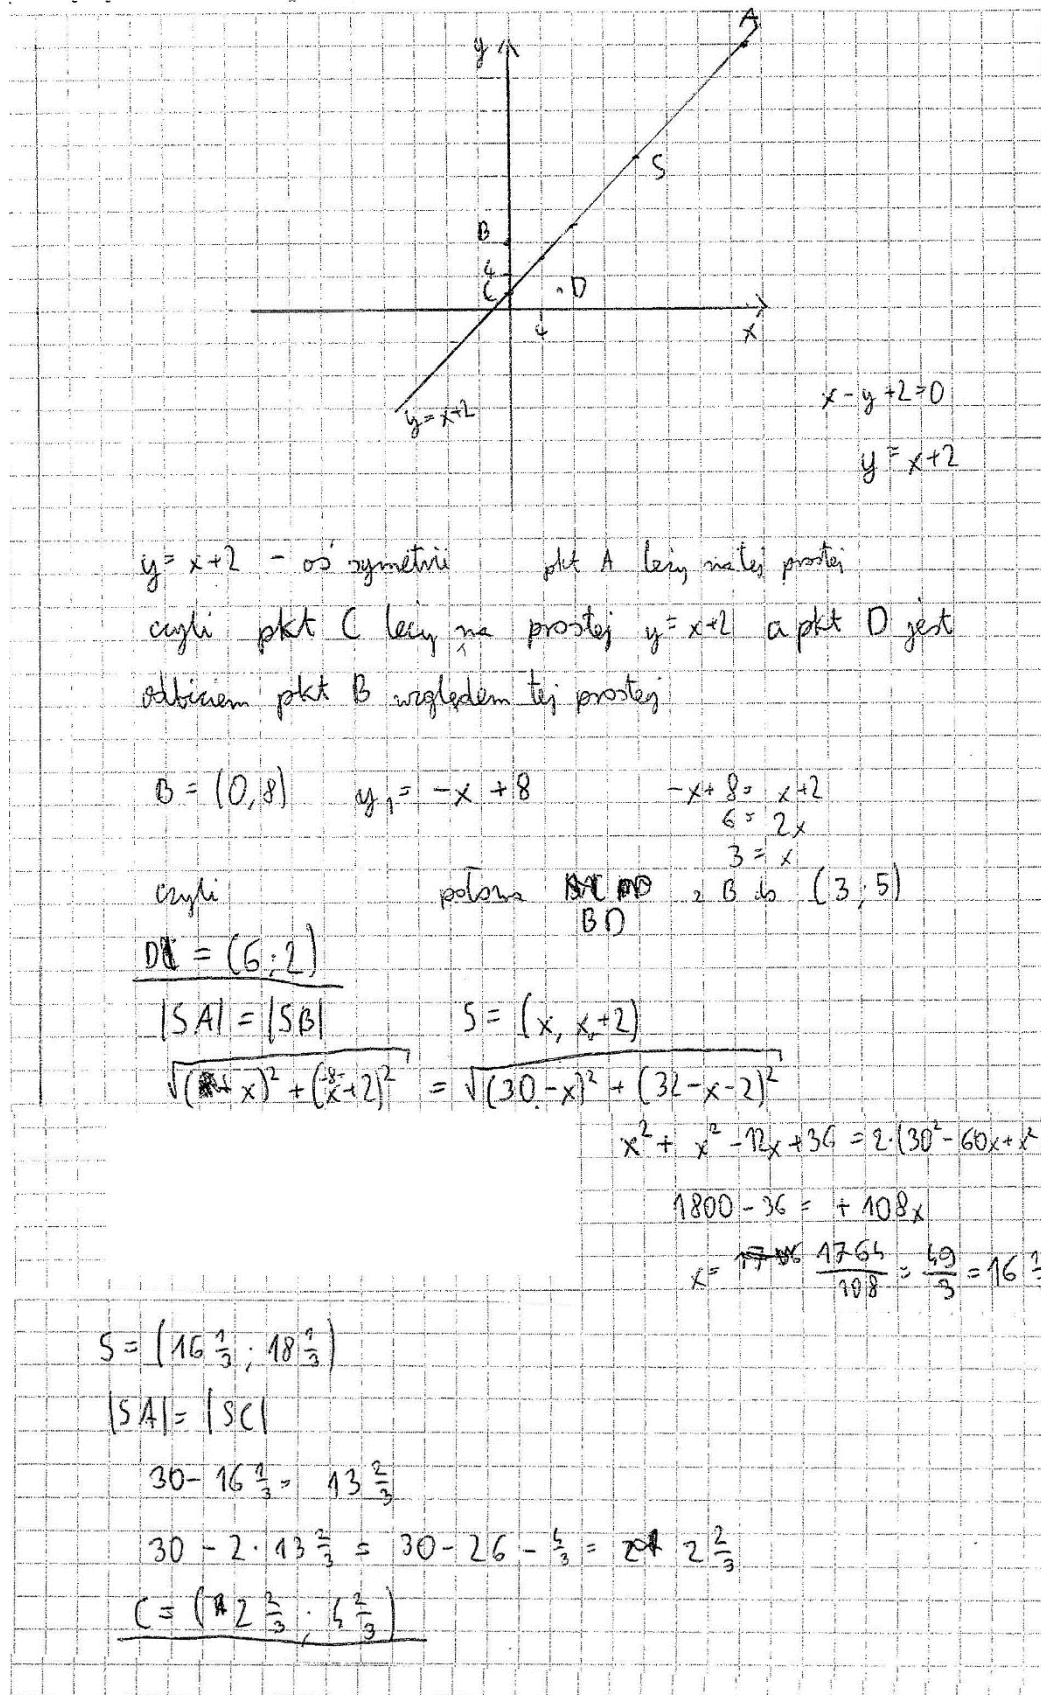 A
y
S
B
4
C
D
4
x
y = x+2
x - y + 2 = 0
y = x+2
y = x+2 - oś symetrii pkt A leży na tej prostej
czyli pkt C leży na prostej y = x+2 a pkt D jest
odbiciem pkt B względem tej prostej
B = (0, 8) y₁ = -x + 8 -x + 8 = x+2
6 = 2x
3 = x
czyli połowa BD z B do (3; 5)
D = (6; 2)
|SA| = |SB| S = (x, x+2)
√((x)² + (-8-x+2)²) = √((30-x)² + (32-x-2)²)
x² + x² - 12x + 36 = 2·(30² - 60x + x²
1800 - 36 = + 108x
x = 1764/108 = 49/3 = 16 1/3
S = (16 1/3 ; 18 1/3)
|SA| = |SC|
30 - 16 1/3 = 13 2/3
30 - 2·13 2/3 = 30 - 26 - 4/3 = 2 2/3
C = (2 2/3 ; 4 2/3)